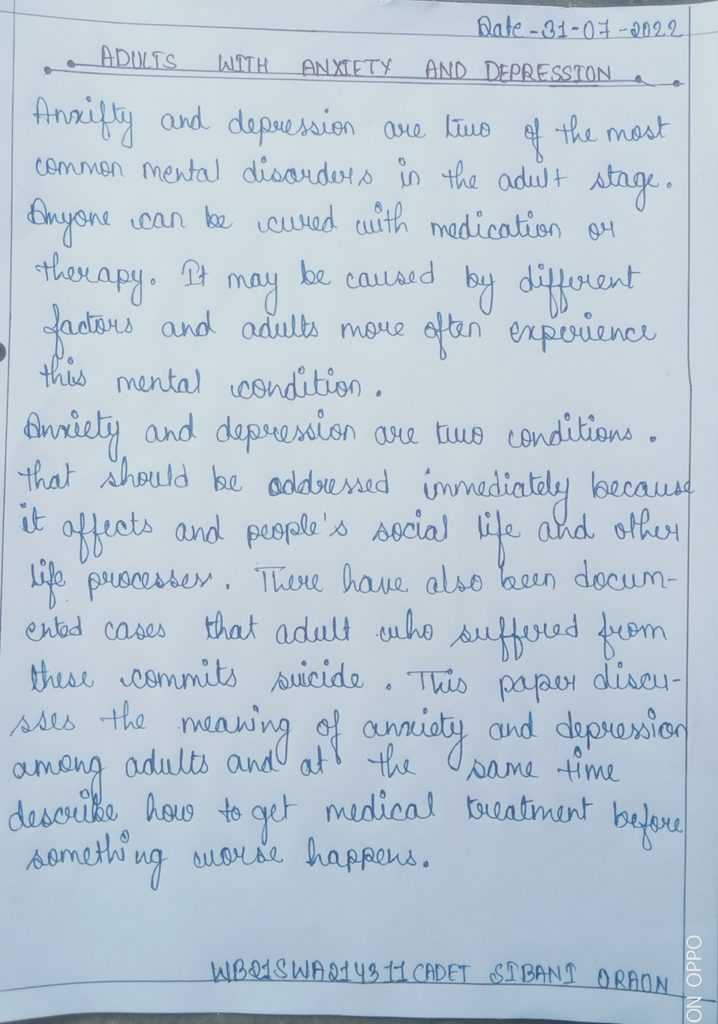 Date - 31-07-2022
ADULTS WITH ANXIETY AND DEPRESSION
Anxifty and depression are two of the most
common mental disorders in the adult stage.
Anyone can be cured with medication or
therapy. It may be caused by different
factors and adults more often experience
this mental condition.
Anxiety and depression are two conditions.
that should be addressed immediately because
it affects and people's social life and other
life processes. There have also been docum-
ented cases that adult who suffered from
these commits suicide. This paper discu-
sses the meaning of anxiety and depression
among adults and at the same time
describe how to get medical treatment before
something worse happens.
WB21SWA214311 CADET SIBANI ORAON
ON OPPO